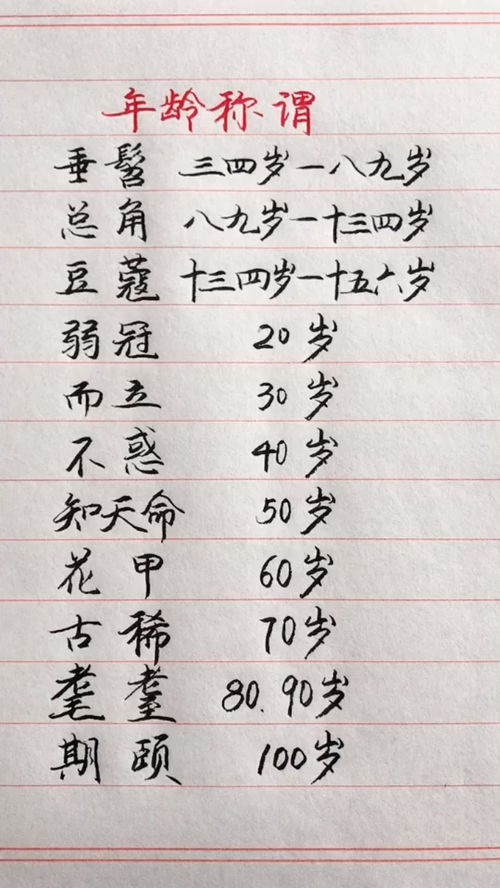 年龄称谓
垂髫 三四岁－八九岁
总角 八九岁－十三四岁
豆蔻 十三四岁－十五六岁
弱冠 20岁
而立 30岁
不惑 40岁
知天命 50岁
花甲 60岁
古稀 70岁
耄耋 80.90岁
期颐 100岁